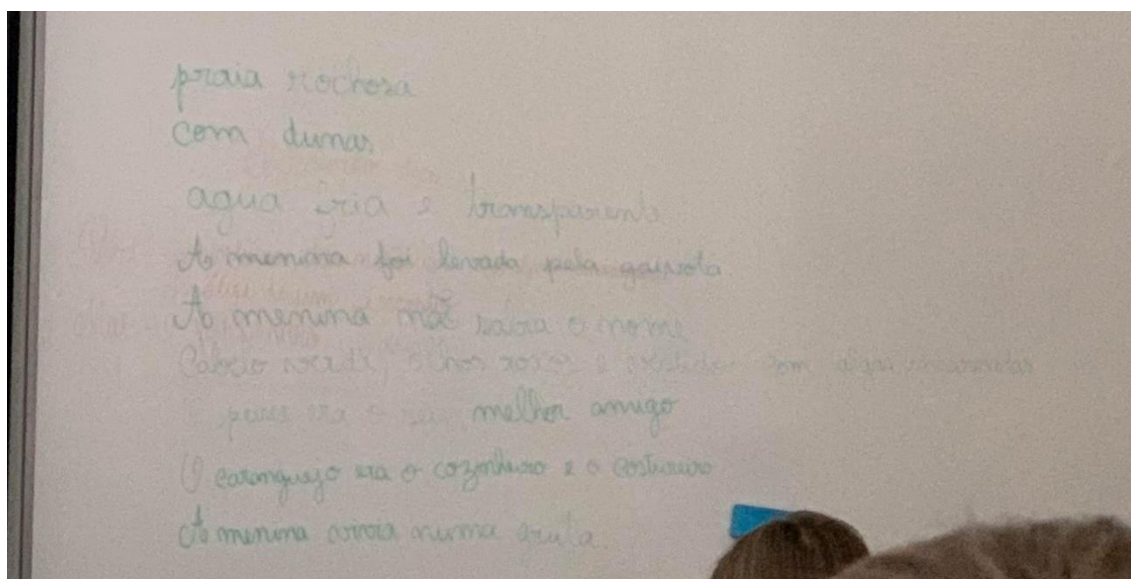 praia rochosa
com dunas
agua fria e transparente
A menina foi levada pela gaivota.
A menina não sabia o nome
Cabelo verde, olhos roxos e vestido com algas encarnadas
peixe era o seu melhor amigo
O caranguejo era o cozinheiro e o costureiro
A menina vivia numa gruta.